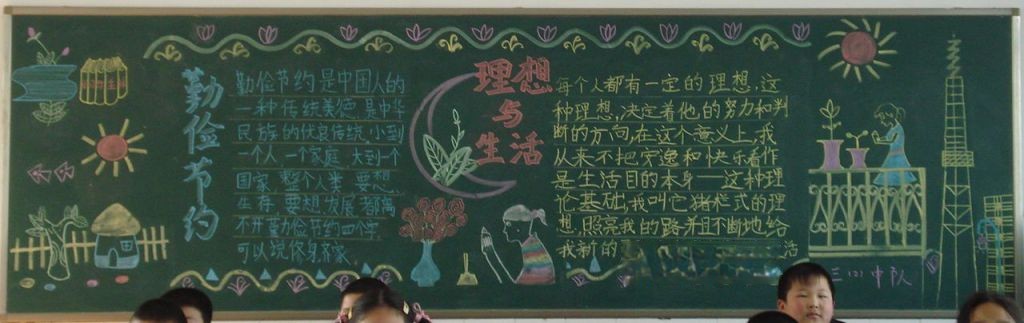 勤俭节约
勤俭节约是中国人的
一种传统美德是中华
民族的优良传统,小到
一个人、一个家庭,大到一个
国家,整个人类,要想
生存,要想发展,都离
不开勤俭节约四个字
可以说修身齐家
理想
与
生活
每个人都有一定的理想,这
种理想,决定着他的努力和判
断的方向,在这个意义上,我
从来不把安逸和快乐看作
是生活目的本身——这种理
论基础,我叫它猪栏式的理
想,照亮我的路并且不断地给
我新的
活
三(2)中队